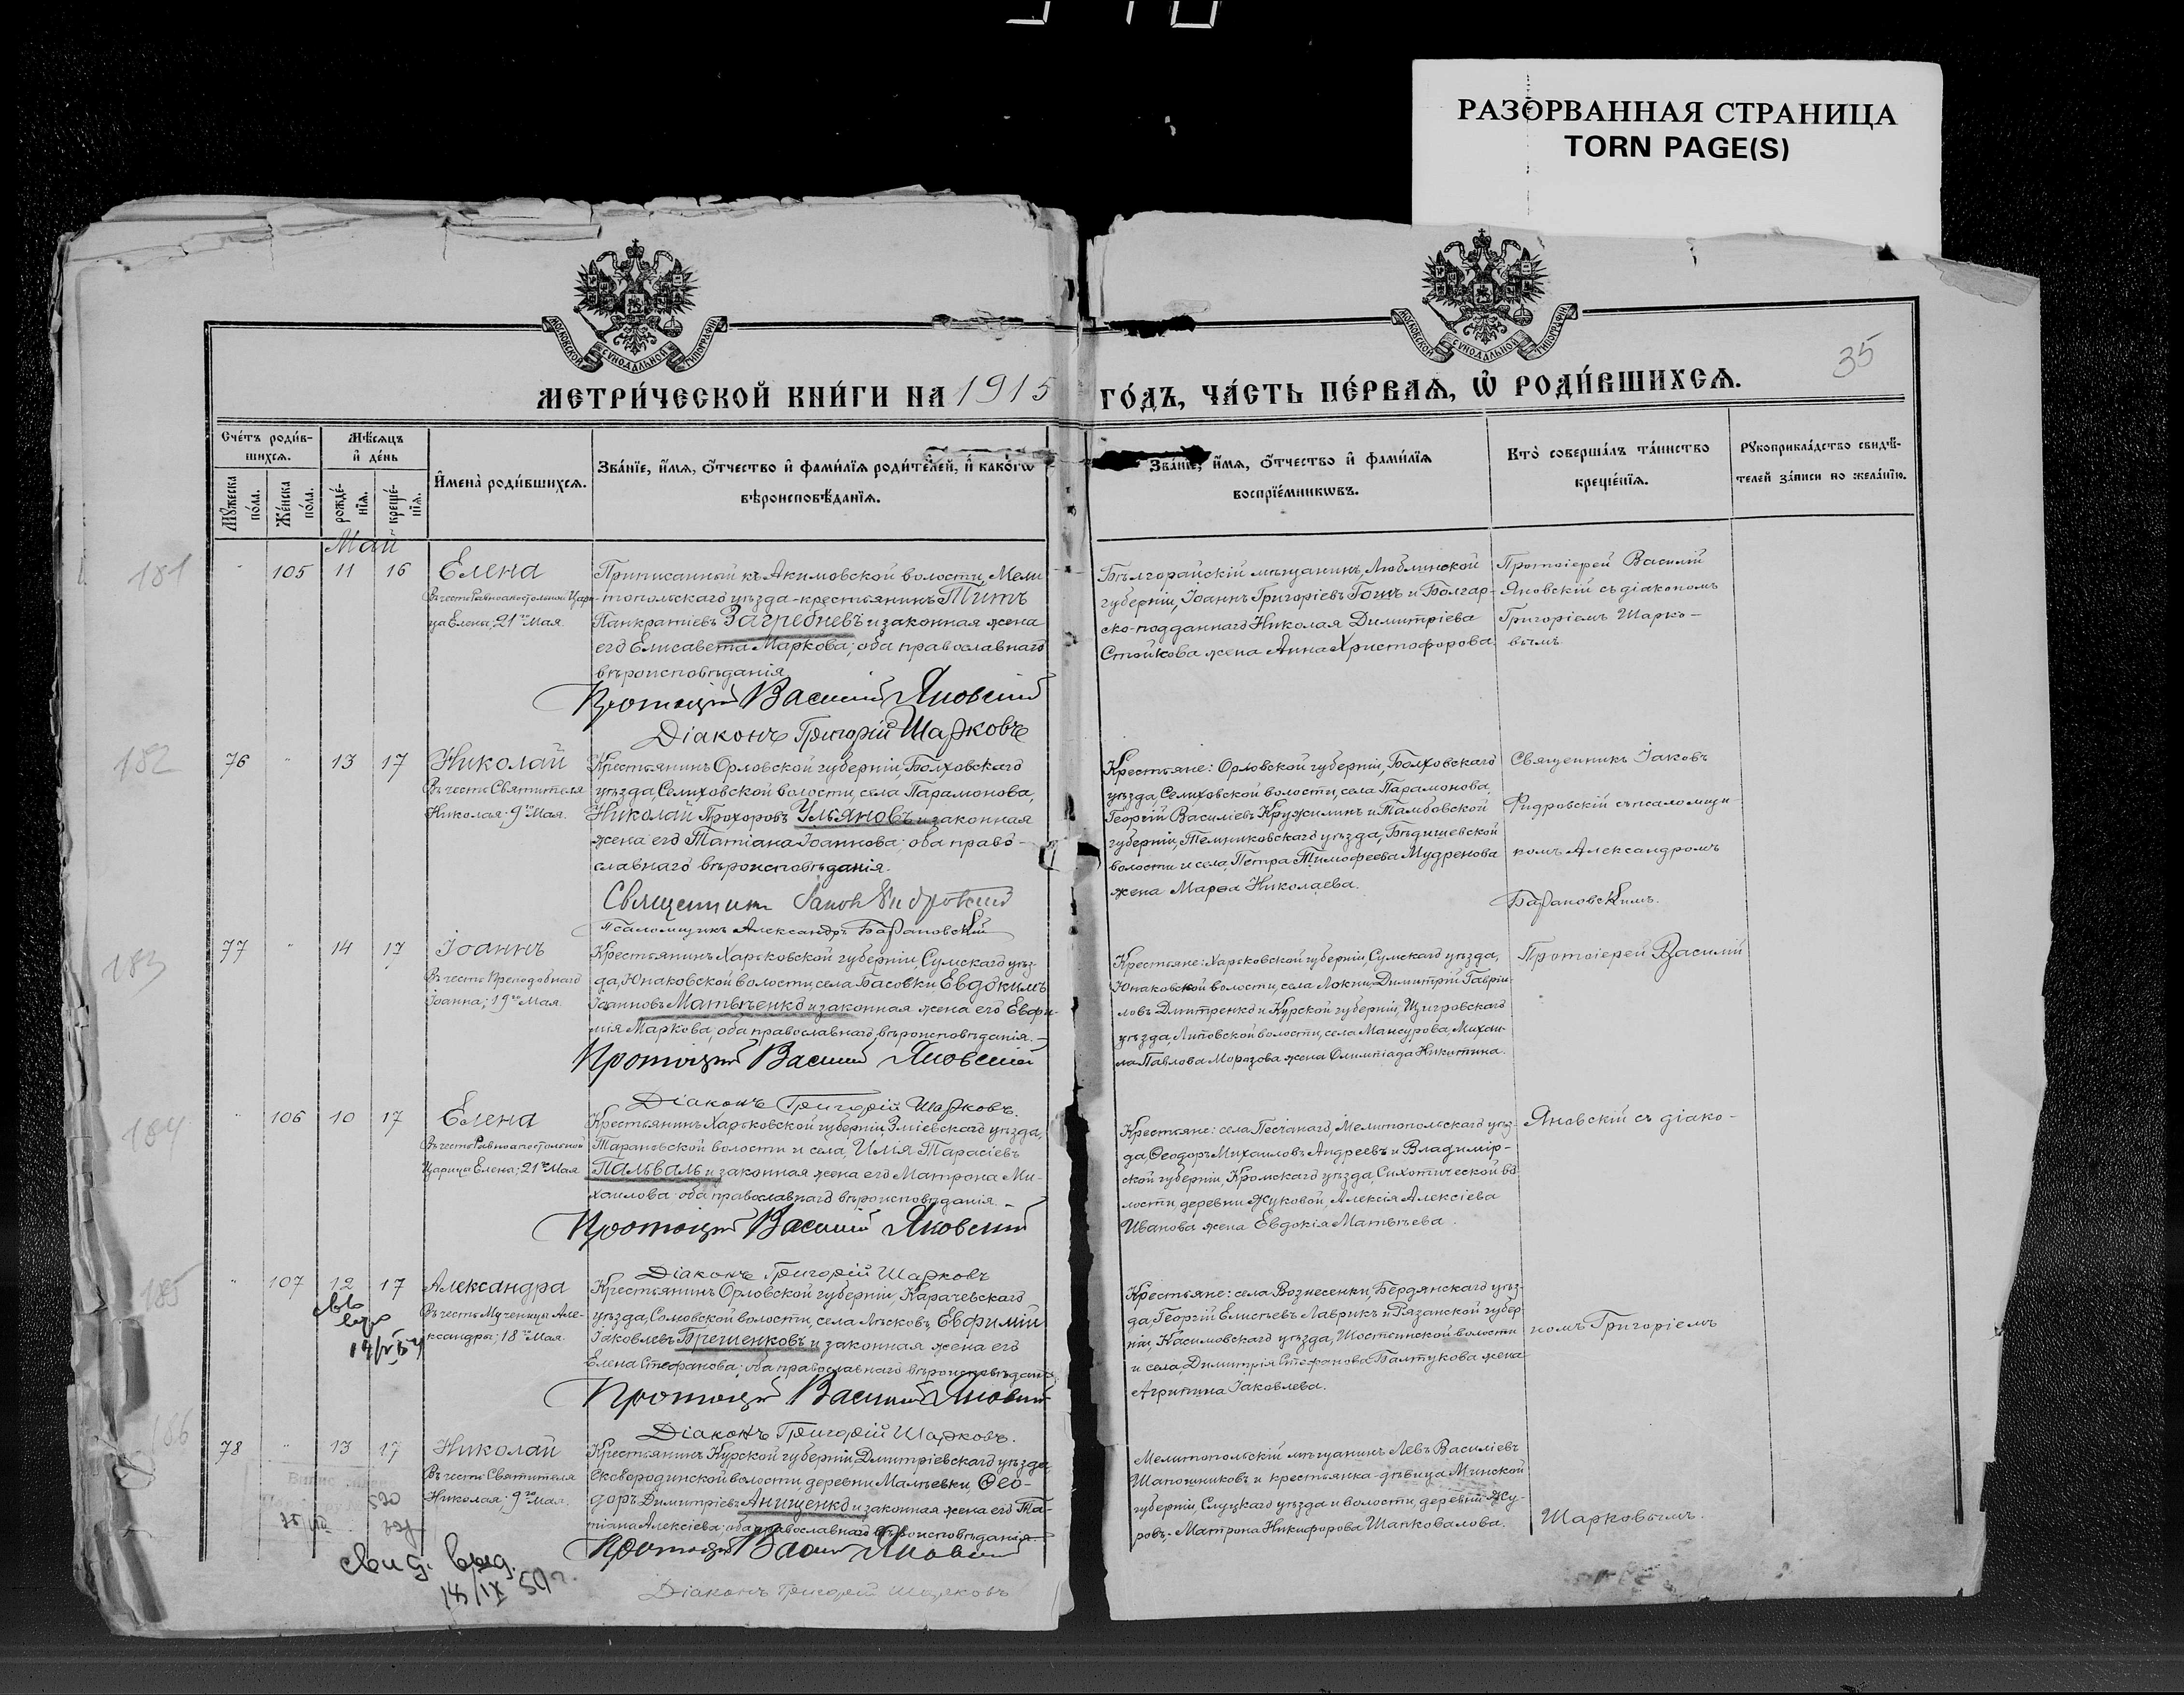 РАЗОРВАННАЯ СТРАНИЦА
TORN PAGE(S)
МОСКОВСКОЙ СУНОДАЛЬНОЙ ТИПОГРАФІИ
МОСКОВСКОЙ СУНОДАЛЬНОЙ ТИПОГРАФІИ
35
МЕТРИ́ЧЕСКОЙ КНИ́ГИ НА 1915 ГО́ДЪ, ЧА́СТЬ ПЕ́РВАѦ, Ѡ҆ РОДИ́ВШИХСѦ.
Сче́тъ роди́в-
шихсѧ.
Мѣ́сѧцъ
и҆ де́нь
Мꙋ́жеска
по́ла.
Же́нска
по́ла.
рожде́-
нїѧ.
креще́-
нїѧ.
И҆мена̀ роди́вшихсѧ.
Зва́нїе, и҆́мѧ, ѻ҆́тчество и҆ фами́лїѧ роди́телей, и҆ како́гѡ
вѣроисповѣ́данїѧ.
Зва́нїе, и҆́мѧ, ѻ҆́тчество и҆ фами́лїѧ
воспрїе́мникѡвъ.
Кто̀ соверша́лъ та́инство
креще́нїѧ.
Рꙋкоприкла́дство свидѣ́-
телей за́писи по жела́нїю.
Май
181
105 11 16 Елена
Въ честь Равноапостольной Цари-
цы Елены, 21го Мая.
Приписанный къ Акимовской волости, Мели
топольскаго уѣзда - крестьянинъ Титъ
Панкратіевъ Загребневъ и законная жена
его Елисавета Маркова; оба православнаго
вѣроисповѣданія
Протоіерей Василій Яновскій
Діаконъ Григорій Шарковъ
Бѣлгорайскій мѣщанинъ, Люблинской
губерніи, Іоаннъ Григоріевъ Гоцъ и Болгар-
ско-подданнаго Николая Димитріева
Стойкова жена Анна Христофорова.
Протоіерей Василій
Яновскій съ діакономъ
Григоріемъ Шарко-
вымъ.
182
76 13 17 Николай
Въ честь Святителя
Николая. 9го Мая.
Крестьянинъ Орловской губерніи, Болховскаго
уѣзда, Селиховской волости, села Парамонова,
Николай Прохоровъ Ульяновъ и законная
жена его Татіана Іоаннова; оба право-
славнаго вѣроисповѣданія.
Священникъ Іаковъ Фидровскій
Псаломщикъ Александръ Барановскій
Крестьяне: Орловской губерніи, Болховскаго
уѣзда, Селиховской волости, села Парамонова,
Георгій Василіевъ Кружилинъ и Тамбовской
губерніи, Темниковскаго уѣзда, Бѣдишевской
волости и села, Петра Тимофеева Мудренова
жена Марѳа Николаева.
Священникъ Іаковъ
Фидровскій съ псаломщи-
комъ Александромъ
Барановскимъ.
183
77 14 17 Іоаннъ
Въ честь Преподобнаго
Іоанна; 19го Мая.
Крестьянинъ Харьковской губерніи, Сумскаго уѣз-
да, Юнаковской волости, села Басовки, Евдокимъ
Іоанновъ Матвѣенко и законная жена его Евфи-
мія Маркова; оба православнаго вѣроисповѣданія.
Протоіерей Василій Яновскій
Діаконъ Григорій Шарковъ.
Крестьяне: Харьковской губерніи, Сумскаго уѣзда,
Юнаковской волости, села Локни, Димитрій Гаврі-
ловъ Дмитренко и Курской губерніи, Щигровскаго
уѣзда, Липовской волости, села Мансурова, Михаи-
ла Павлова Морозова жена Олимпіада Никитина.
Протоіерей Василій
184
106 10 17 Елена
Въ честь Равноапостольной
Царицы Елены; 21го Мая
Крестьянинъ Харьковской губерніи Зміевскаго уѣзда,
Тарановской волости и села, Илія Тарасіевъ
Пальваль и законная жена его Матрона Ми-
хаилова оба православнаго вѣроисповѣданія.
Протоіерей Василій Яновскій
Діаконъ Григорій Шарковъ
Крестьяне: села Песчанаго, Мелитопольскаго уѣз-
да, Ѳеодоръ Михаиловъ Андреевъ и Владимір-
ской губерніи, Кромскаго уѣзда, Сихотической во-
лости, деревни Жуковой, Алексія Алексіева
Иванова жена Евдокія Матвѣева.
Яновскій съ діако-
185
107 12 17 Александра
Въ честь Мученицы Але-
ксандры; 18го Мая.
Крестьянинъ Орловской губерніи, Карачевскаго
уѣзда, Сомовской волости, села Лѣсковъ, Евфимій
Іаковлевъ Брешенковъ и законная жена его
Елена Стефанова; оба православнаго вѣроисповѣданія
Протоіерей Василій Яновскій
Діаконъ Григорій Шарковъ.
Крестьяне: села Вознесенки, Бердянскаго уѣз-
да, Георгій Елисѣевъ Лаврикъ и Рязанской губер-
ніи, Касимовскаго уѣзда, Шостьинской волости
и села, Димитрія Стефанова Балтукова жена
Агрипина Іаковлева.
номъ Григоріемъ
186
78 13 17 Николай
Въ честь Святителя
Николая. 9го Мая.
Крестьянинъ Курской губерніи, Дмитріевскаго уѣзда,
Сковородинской волости, деревни Малѣевки, Ѳео-
доръ Димитріевъ Анищенко и законная жена его Та-
тіана Алексіева; оба православнаго вѣроисповѣданія.
Протоіерей Василій Яновскій
Діаконъ Григорій Шарковъ
Мелитопольскій мѣщанинъ Левъ Василіевъ
Шапошниковъ и крестьянка-дѣвица Минской
губерніи Слуцкаго уѣзда и волости, деревни Жу-
ровъ, Матрона Никифорова Шапковалова.
Шарковымъ.
свид. выд.
18/IX 59 г.